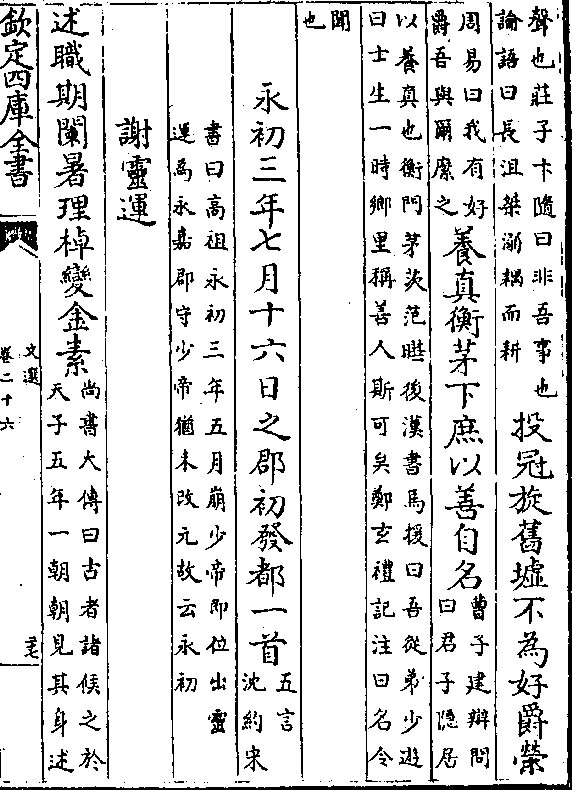 聲也莊子卞隨曰非吾事也
論語曰長沮桀溺耦而耕
投冠旋舊墟不為好爵縈
周易曰我有好
爵吾與爾縻之
養真衡茅下庶以善自名
曹子建辯問
曰君子隱居
以養真也衡門茅茨范曄後漢書馬援曰吾從弟少遊
曰士生一時鄉里稱善人斯可矣鄭玄禮記注曰名令
聞
也
永初三年七月十六日之郡初發都一首
五言
沈約宋
書曰高祖永初三年五月崩少帝即位出靈
運為永嘉郡守少帝猶未改元故云永初
謝靈運
述職期闌暑理棹變金素
尚書大傳曰古者諸侯之於
天子五年一朝朝見其身述
欽定四庫全書
文選
卷二十六